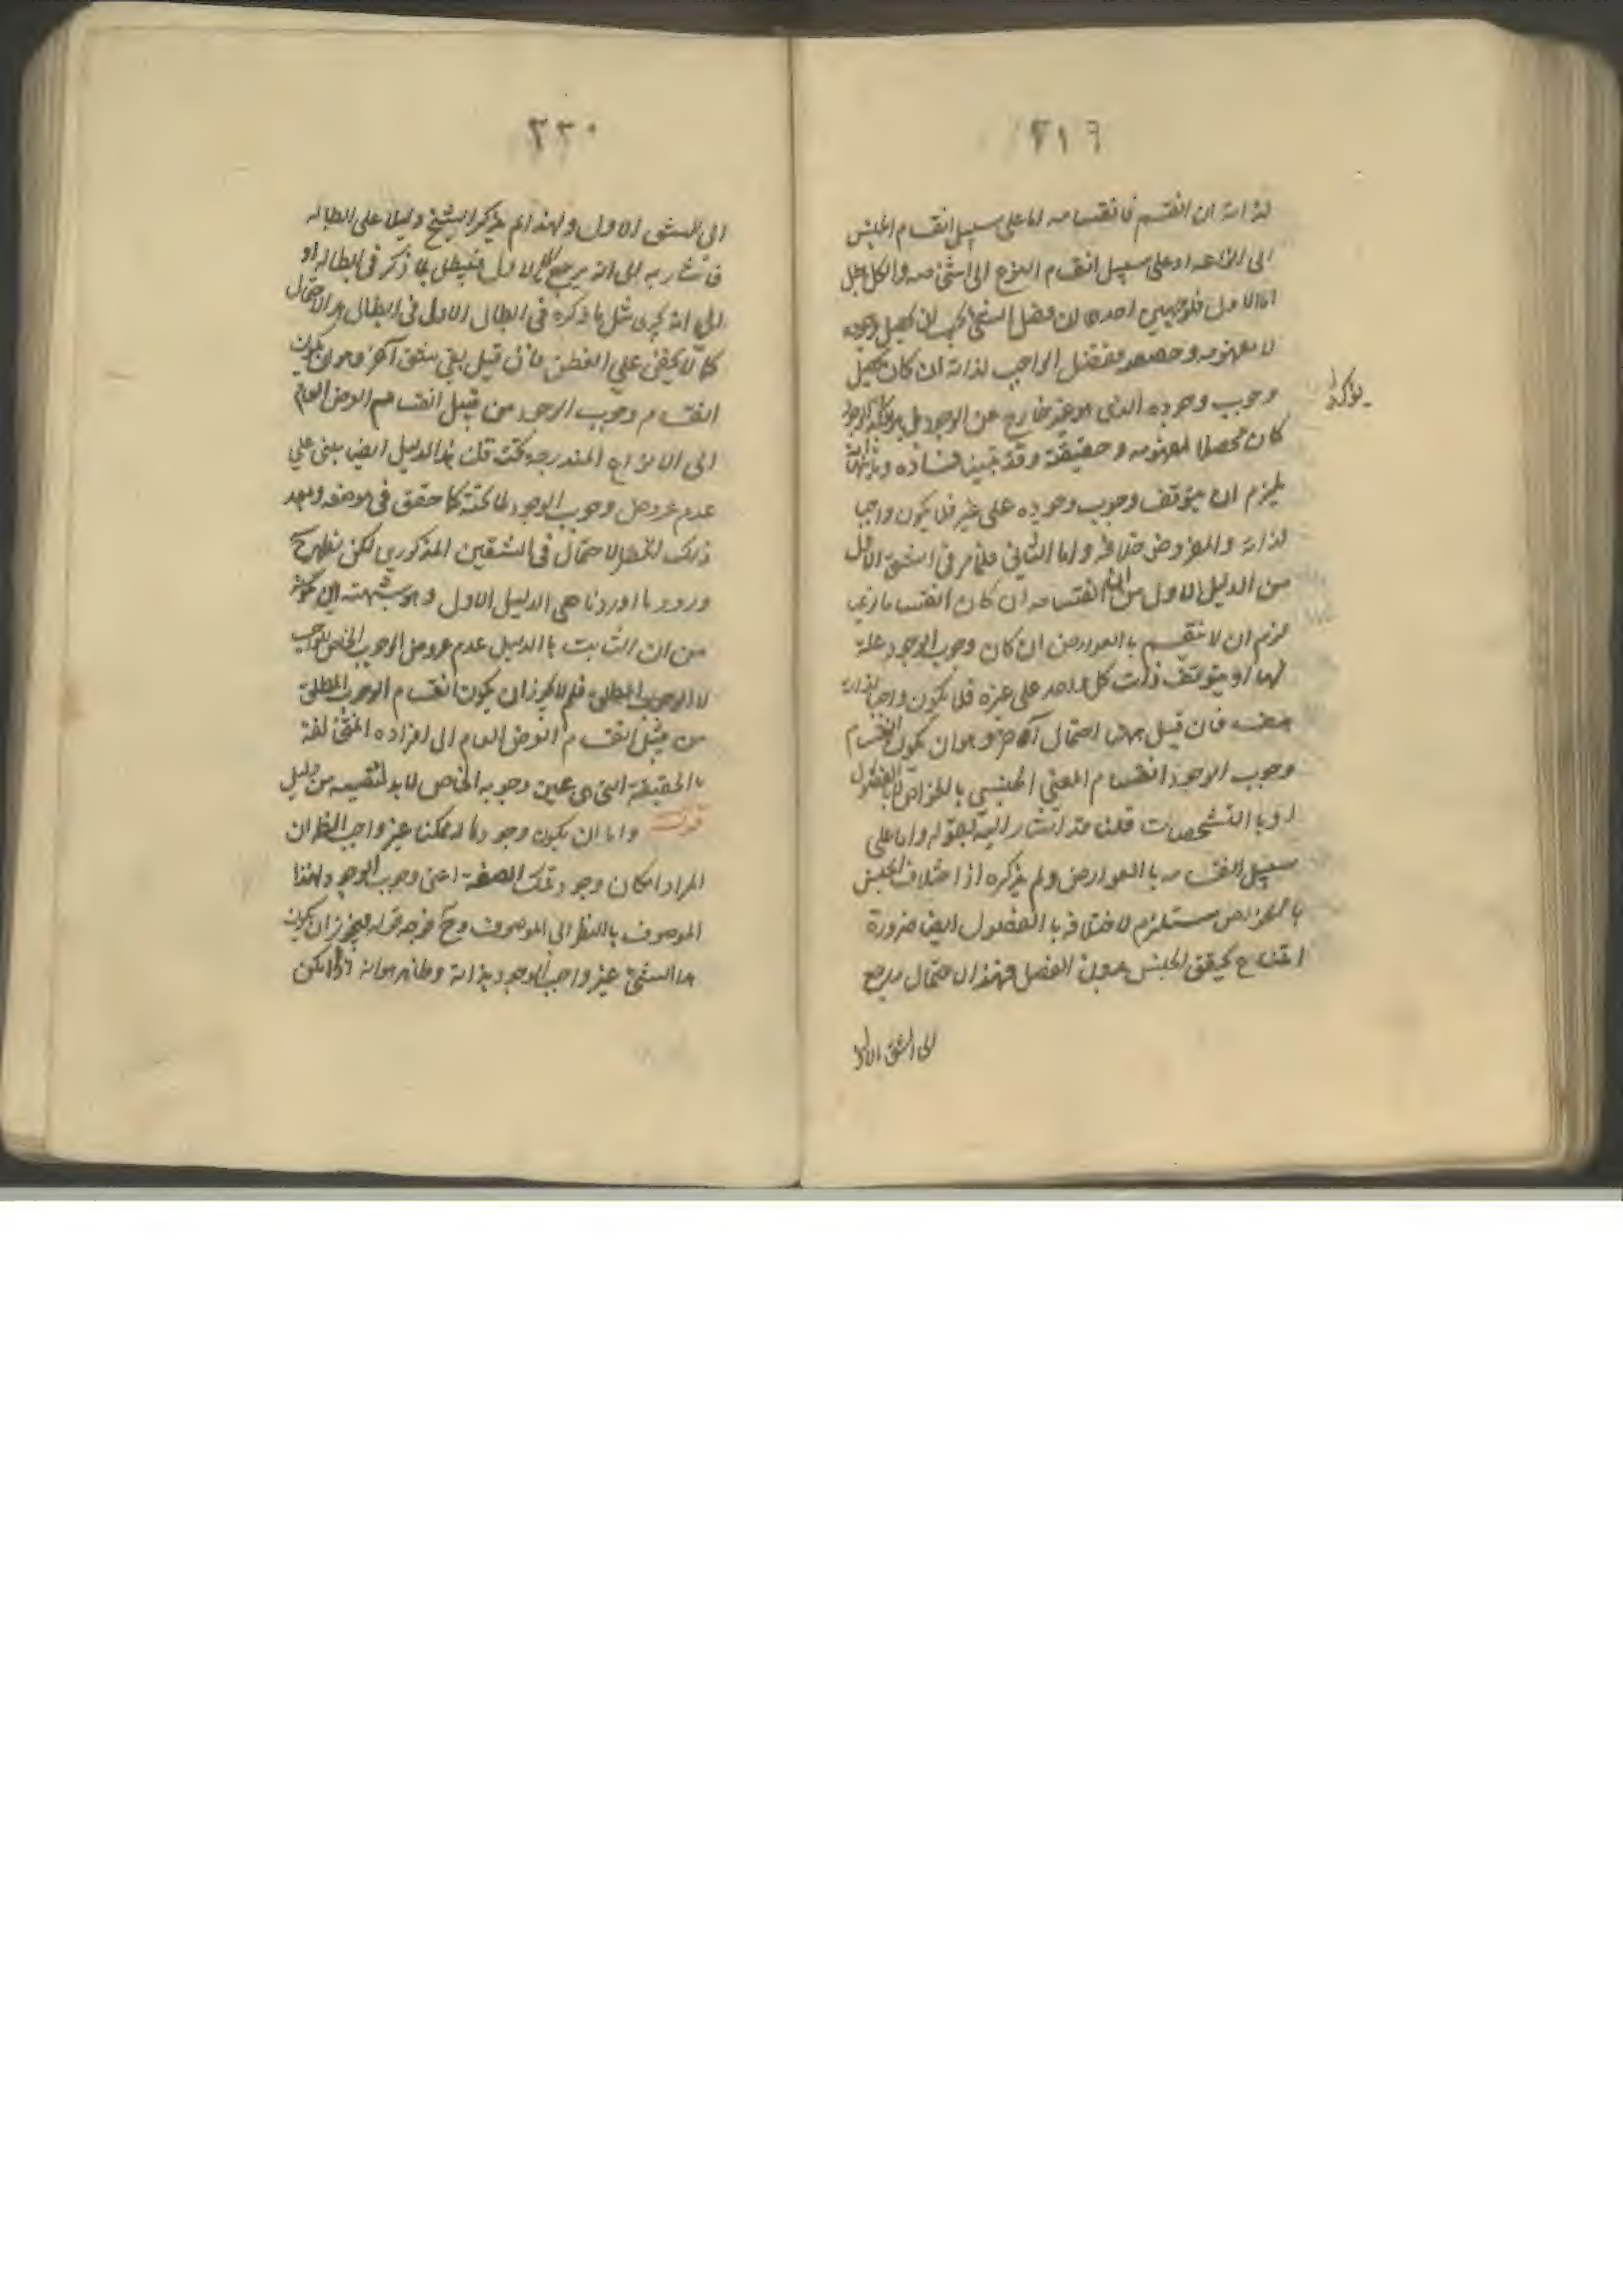 ٢١٩
لذاته ان انقسم فانقسامه اما على سبيل انقسام الجنس
الى انواعه او على سبيل انقسام النوع الى اشخاصه والكل بطل
اما الاول فلوجهين احدهما ان فصل الشئ يجب ان يحصل وجوده
لا مفهومه وحقيقته وفصل الواجب لذاته ان كان يحصل
وجوب وجوده الذى هو غير خارج عن الوجود بل هو تاكد الوجود
كان محصلا لمفهومه وحقيقته وقد تبين فساده وثانيهما انه
يلزم ان يتوقف وجوب وجوده على غيره فلا يكون واجبا
لذاته والمفروض خلافه واما الثانى فلما مر فى الشق الاول
من الدليل الاول من ان انقسامه ان كان انقساما نوعيا
لزم ان لا ينقسم بالعوارض ان كان وجوب الوجود علة
لها او يتوقف ذات كل واحد على غيره فلا يكون واجبا لذاته
هف فان قيل ههنا احتمال آخر وهو ان يكون انقسام
وجوب الوجود انقسام المعنى الجنسى بالخواص لا بالفصول
او بالتشخصات قلنا قد اشار اليه بقوله واما على
سبيل انقسامه بالعوارض ولم يذكره اذ اختلاف الجنس
بالخواص مستلزم لاختلافه بالفصول ايضا ضرورة
امتناع تحقق الجنس بدون الفصل فهذا الاحتمال يرجع
الى الشق الاول
٢٢٠
الى الشق الاول ولهذا لم يذكر الشيخ دليلا على ابطاله
فاشار به الى انه يرجع الى الاول فيبطل بما ذكر فى ابطاله او
الى انه يجرى مثل ما ذكره فى ابطال الاول فى ابطال هذا الاحتمال
كما لا يخفى على الفطن فان قيل بقى شق آخر وهو ان يكون
انقسام وجوب الوجود من قبيل انقسام العرض العام
الى الانواع المندرجة تحته قلت هذا الدليل ايضا مبنى على
عدم عروض وجوب الوجود لما تحته كما حقق فى موضعه وبعد
ذلك انحصر الاحتمال فى الشقين المذكورين لكن يظهر ح
ورود ما اوردنا على الدليل الاول وهو شبهة ابن كمونة
من ان الثابت بالدليل عدم عروض الوجوب الخاص للواجب
لا الوجوب المطلق فلم لا يجوز ان يكون انقسام الوجوب المطلق
من قبيل انقسام العرض العام الى افراده المختلفة
بالحقيقة التى هى عين وجوبه الخاص لا بد لنفيه من دليل
قوله واما ان يكون وجودها له ممكنا غير واجب الظ ان
المراد امكان وجود تلك الصفة اعنى وجوب الوجود لهذا
الموصوف بالنظر الى الموصوف وح فوجه قوله فيجوز ان يكون
هذا الشئ غير واجب الوجود بذاته وظاهر هو انه اذا امكن